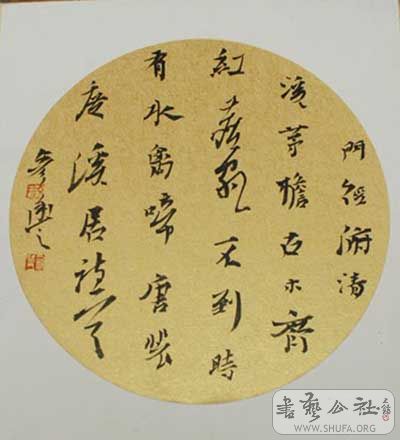 門徑俯清
溪茅檐古木齊
紅塵飄不到時
有水禽啼唐裴
度溪居詩一首
書藝公社
WWW.SHUFA.ORG